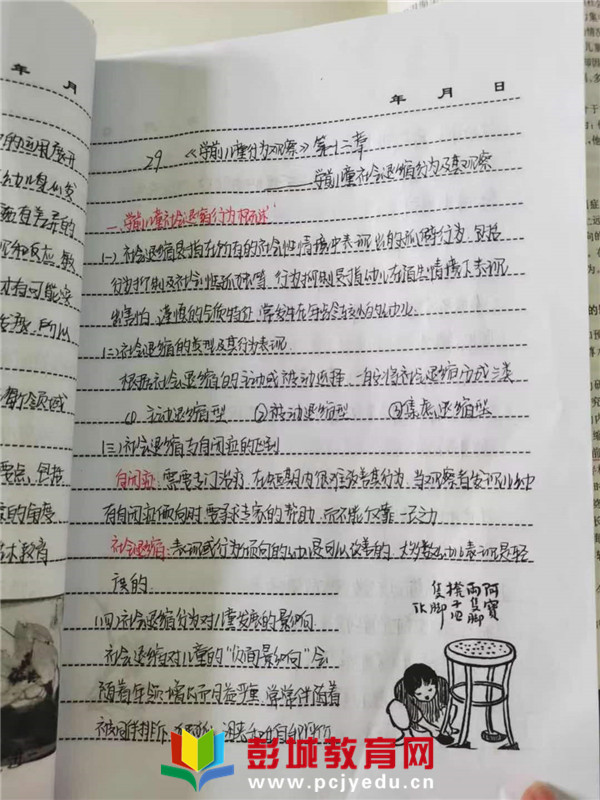 年 月
年 月 日
29 《学前儿童行为观察》第十三章
——学前儿童社会退缩行为及其观察
一、学前儿童社会退缩行为概述
(一)社会退缩是指在所有的社会性情境中表现出的孤僻行为,包括
行为抑制及社会性孤独等,行为抑制是指幼儿在陌生情境下表现
出害怕、谨慎的气质特征,常发生在年龄较小的幼儿.
(二)社会退缩的类型及其行为表现
根据社会退缩的主动或被动选择,一般将社会退缩分成三类
① 主动退缩型 ②被动退缩型 ③焦虑退缩型
(三)社会退缩与自闭症的区别
自闭症:需要专门治疗,在短期内很难改善其行为,当观察者发现儿童
有自闭症倾向时要寻求专家的帮助,而不能仅靠一己之力
社会退缩:表现或行为倾向的幼儿是可以改善的,大多数幼儿表现是轻
度的
(四)社会退缩行为对儿童发展的影响
社会退缩对儿童的“负面影响”会
随着年龄增大而日益严重,常常伴随着
被同伴排斥
阿寶兩隻腳
凳子四隻腳
开
有差异的
反应,敏
有可能
所以
领域
要点,包括
的角度
术教育
彭城教育网
www.pcjyedu.cn